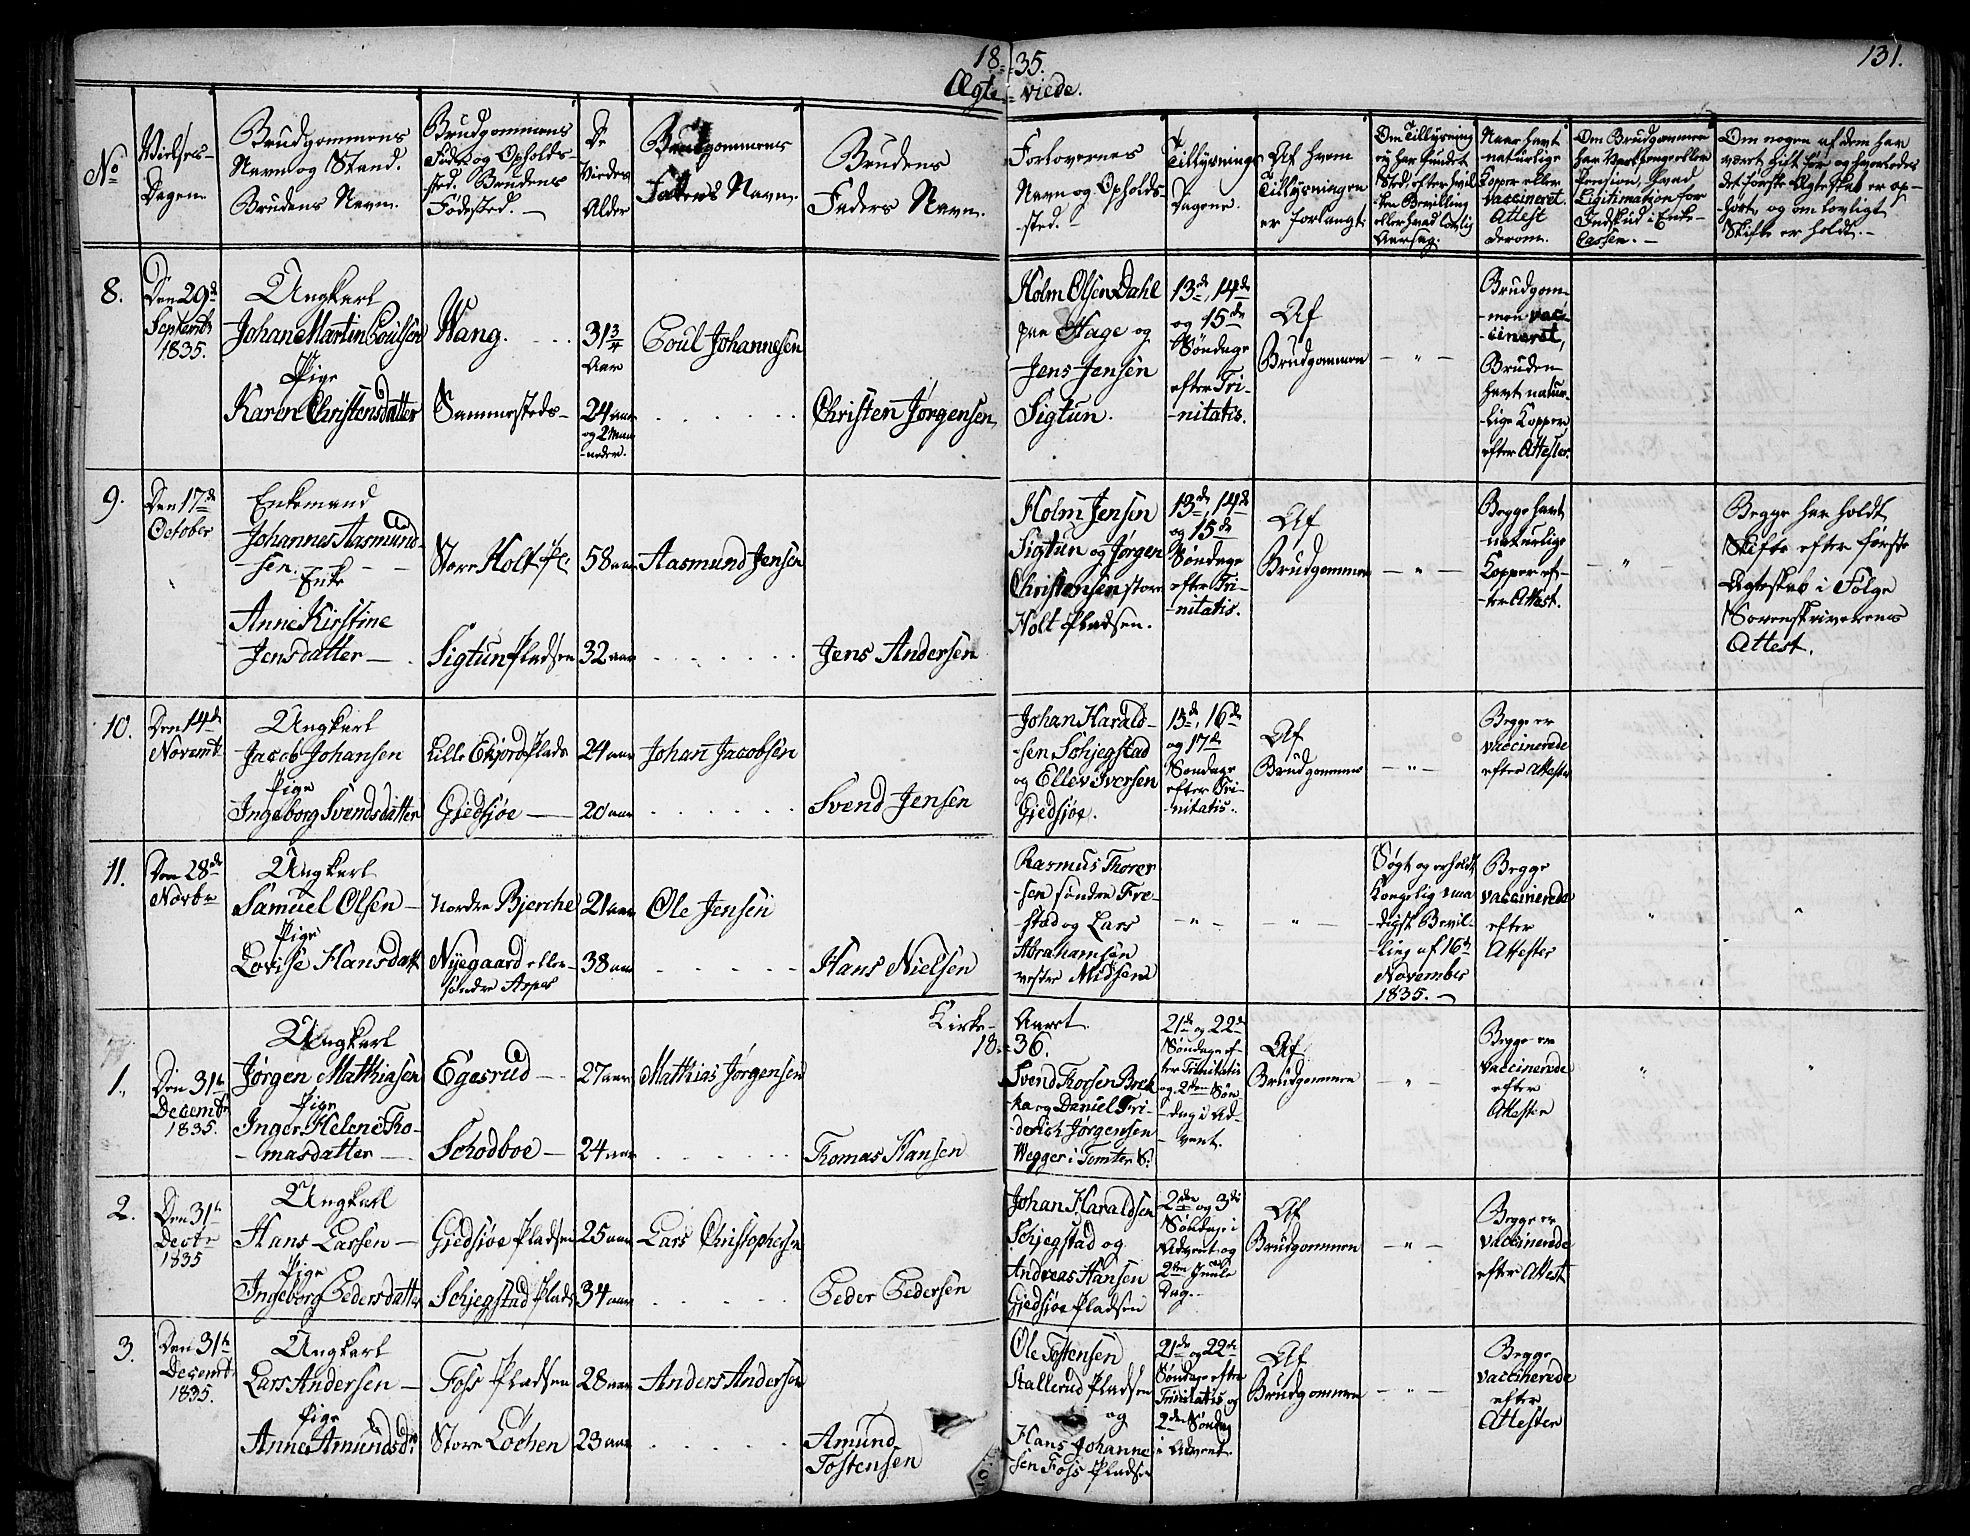 18 = 35.
131.
Ægte = viede.
No
Vielses-
Dagen.
Brudgommens
Navn og Stand.
Brudens Navn.
Brudgommens
Føde og Opholds-
sted. Brudens
Fødested. -
De
Viedes
Alder
Brudgommens
Faders Navn.
Brudens
Faders Navn.
Forlovernes
Navn og Opholds-
sted. -
Tillysnings
Dagene.
Af hvem
Tillysningen
er forlangt.
Om Tillysning
ei har fundet
Sted, efter hvil-
ken Bevilling
eller hvad lovlig
Aarsag.
Naar havt
naturlige
Kopper eller
vaccineret.
Attest
derom.
Om Brudgommen
har Vartpenge eller
Pension, hvad
Legitimation for
Indskud i Enke-
Cassen. -
Om nogen af dem har
været gift før og hvorledes
det første Ægteskab er op-
hørt, og om lovligt
Skifte er holdt. -
8.
Den 29de
Septembr
1835.
Ungkarl
Johan Martin Poulsen
Pige
Karen Christensdatter
Wang.
Sammesteds -
31 3/4
Aar
24 aar
og 2 Maa
neder.
Poul Johannesen
Christen Jørgensen
Holm Olsen Dahl
paa Hage og
Jens Jensen
Sigtun.
13de, 14de
og 15de
Søndage
efter Tri-
-nitatis.
Af
Brudgommen
- " -
Brudgom-
men vac-
-cineret,
Bruden
havt natur-
-lige Kopper
efter Attester.
9.
Den 17de
October
Enkemand
Johannes Aasmund-
-sen.
Enke
Anne Kirstine
Jensdatter -
Store Holt Pl.
Sigtun Pladsen
58 aar
32 aar
Aasmund Jensen
Jens Andersen
Holm Jensen
Sigtun og Jørgen
Christensen store
Holt Pladsen.
13de, 14de
og 15de
Søndage
efter Tri-
-nitatis.
Af
Brudgommen
- " -
Begge havt
naturlige
Kopper ef-
-ter Attest.
- " -
Begge har holdt
Skifte efter første
Ægteskab i Følge
Sorenskriverens
Attest.
10.
Den 14de
Novembr
Ungkarl
Jacob Johansen
Pige
Ingeborg Svendsdatter
Lille Ekjord Plads
Gjedsjøe -
24 aar
20 aar
Johan Jacobsen
Svend Jensen
Johan Harald-
-sen Schjegstad
og Ellev Iversen
Gjedsjøe.
15de, 16de
og 17de
Søndage
efter Tri-
-nitatis.
Af
Brudgommen
- " -
Begge er
vaccinerede
efter Attester
11.
Den 28de
Novbr
Ungkarl
Samuel Olsen -
Pige
Lovise Hansdatt
Nordre Bjerche
Nyegaard eller
søndre Aspes
21 aar
38 aar
Ole Jensen
Hans Nielsen
Rasmus Thorer
-sen søndre Fre-
-stad og Lars
Abrahamsen
vestre Midsem
- " -
- " -
Søgt og erholdt
Kongelig naa-
-digst Bevil-
-ling af 16de
November
1835. -
Begge
vaccinerede
efter
Attester
"
"
Kirke- Aaret
18 = 36.
1.
Den 31te
Decembr
1835.
Ungkarl
Jørgen Mathiasen
Pige
Inger Helene Tho-
-masdatter -
Egesrud -
Schodboe -
27 aar
24 aar
Mathias Jørgensen
Thomas Hansen
Svend Thorsen Brek
ka og Daniel Fri-
derich Jørgensen
Wegger i Tomter S.
21de og 22de
Søndage ef-
ter Trinitatis
og 2den Søn-
dag i Ad-
vent.
Af
Brudgommen
- " -
Begge er
vaccinerede
efter
Attester
"
"
2.
Den 31te
Decbr
1835
Ungkarl
Hans Larsen -
Pige
Ingeborg Pedersdatter
Gjedsjøe Pladsen
Schjegstad Plads
25 aar
34 aar
Lars Christophersen
Peder Pedersen
Johan Haraldsen
Schjegstad og
Andreas Hansen
Gjedsjøe Pladsen
2den og 3die
Søndage i
Advent og
2den Juule
Dag. -
Af
Brudgommen
- " -
Begge er
vaccinerede
efter Attest
3.
Den 31te
Decembr
1835.
Ungkarl
Lars Andersen -
Pige
Anne Amundsdr
Foss Pladsen
Store Løchen
28 aar
23 aar
Anders Andersen
Amund
Tostensen
Ole Tostensen
Stallerud Pladsen
og
Hans Johanne
sen Foss Pladsen
21de og 22de
Søndage efter
Trinitatis og
2den Søndag
i Advent.
Af
Brudgommen
- " -
Begge
vaccinerede
efter
Attester